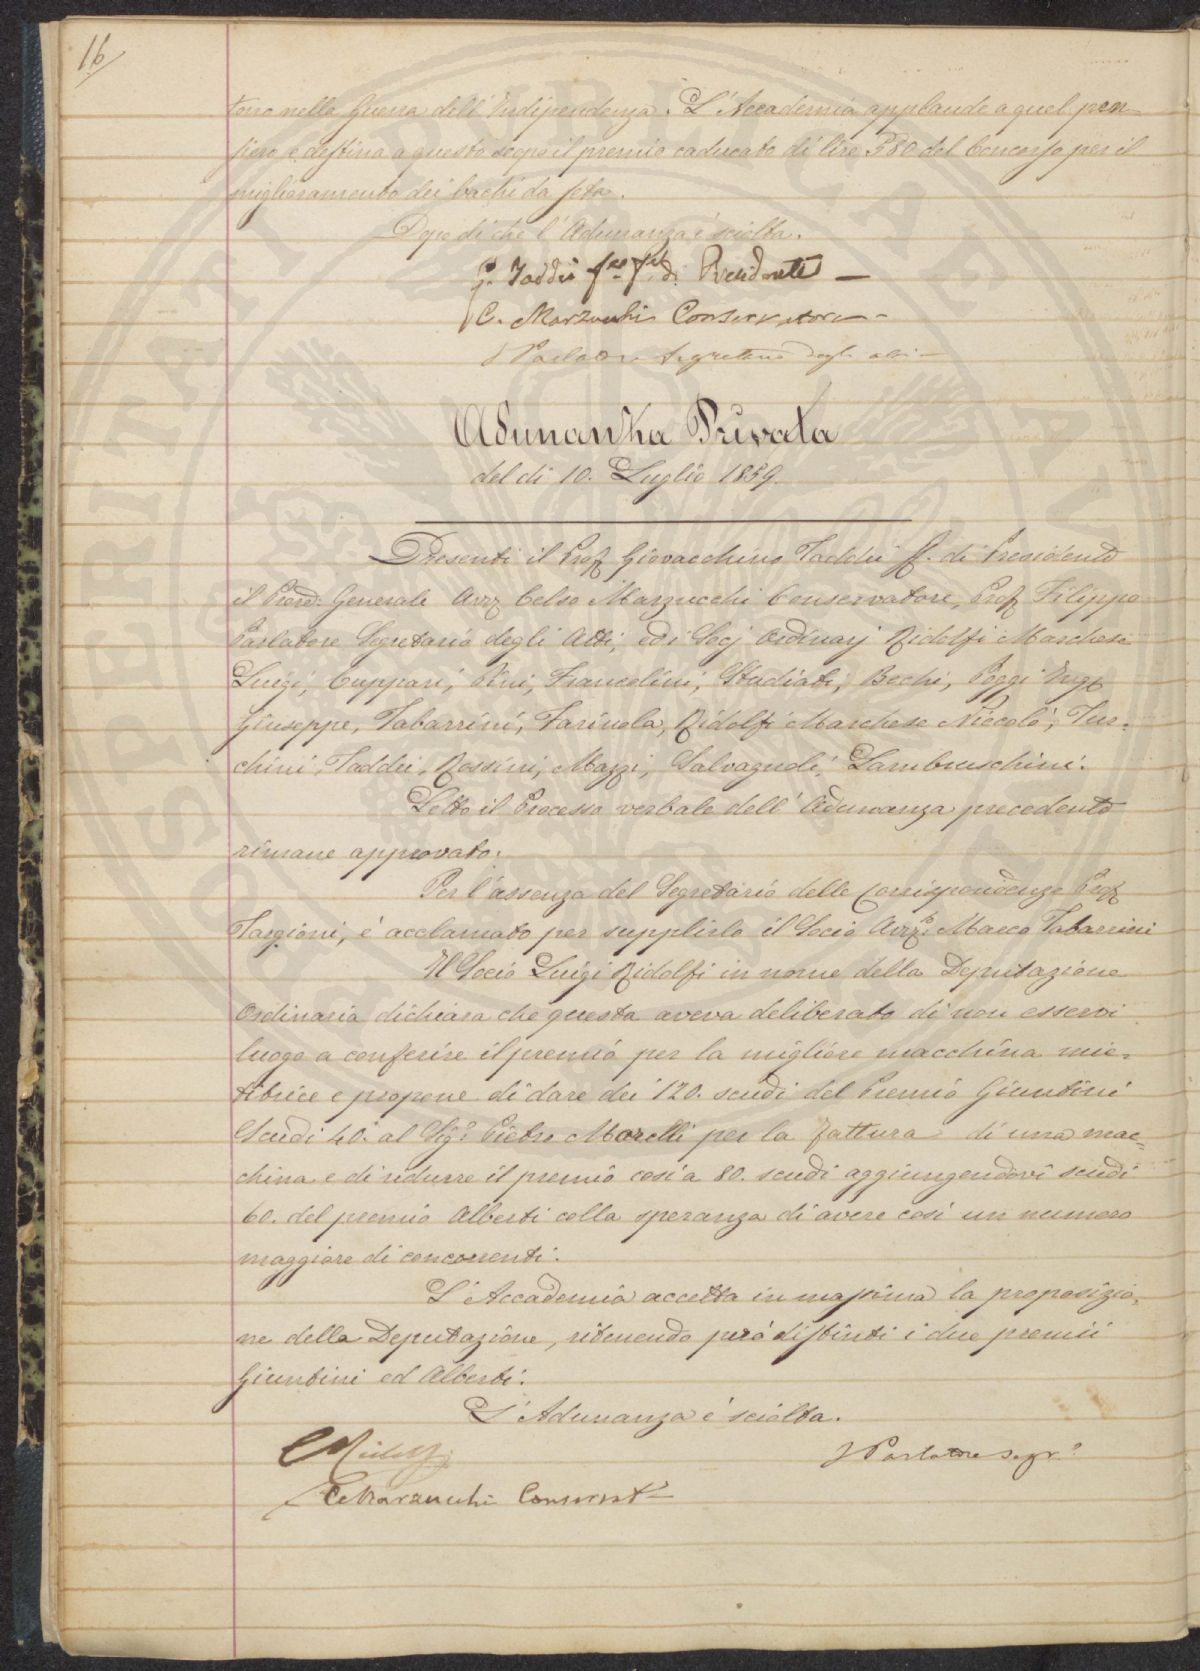 16
rono nella Guerra dell'Indipendenza. L'Accademia applaude a quel pen
siero e destina a questo scopo il premio caducato di lire 580 del Concorso per il
miglioramento dei bachi da seta.
Dopo di che l'Adunanza è sciolta.
G. Taddei ff. di Presidente
C. Marzucchi Conservatore
F Parlatore Segretario degli atti
Adunanza Privata
del dì 10. Luglio 1859.
Presenti il Prof. Giovacchino Taddei ff. di Presidente
il Proc. Generale Avv. Celso Marzucchi Conservatore, Prof. Filippo
Parlatore Segretario degli Atti, ed i Socj Ordinarj Ridolfi Marchese
Luigi, Cuppari, Pini, Francolini, Studiati, Bechi, Poggi
Giuseppe, Tabarrini, Farinola, Ridolfi Marchese Niccolò, Tur=
chini, Taddei, Rossini, Mazzi, Salvagnoli, Lambruschini.
Letto il Processo verbale dell'Adunanza precedente
rimane approvato.
Per l'assenza del Segretario delle Corrispondenze Prof.
Targioni, è acclamato per supplirlo il Socio Avv. Marco Tabarrini
Il Socio Luigi Ridolfi in nome della Deputazione
Ordinaria dichiara che questa aveva deliberato di non esservi
luogo a conferire il premio per la migliore macchina mie=
titrice e propone di dare dei 120. scudi del Premio Giuntini
Scudi 40. al Sig.e Pietro Morelli per la fattura di una mac=
china e di ridurre il premio così a 80. scudi aggiungendovi scudi
60. del premio Alberti colla speranza di avere così un numero
maggiore di concorrenti.
L'Accademia accetta in massima la proposizio=
ne della Deputazione, ritenendo però distinti i due premii
Giuntini ed Alberti.
L'Adunanza è sciolta.
C Ridolfi
F Parlatore Segr.e
C Marzucchi Conservat.e
SOSPERITATI PUBLICAE AVG